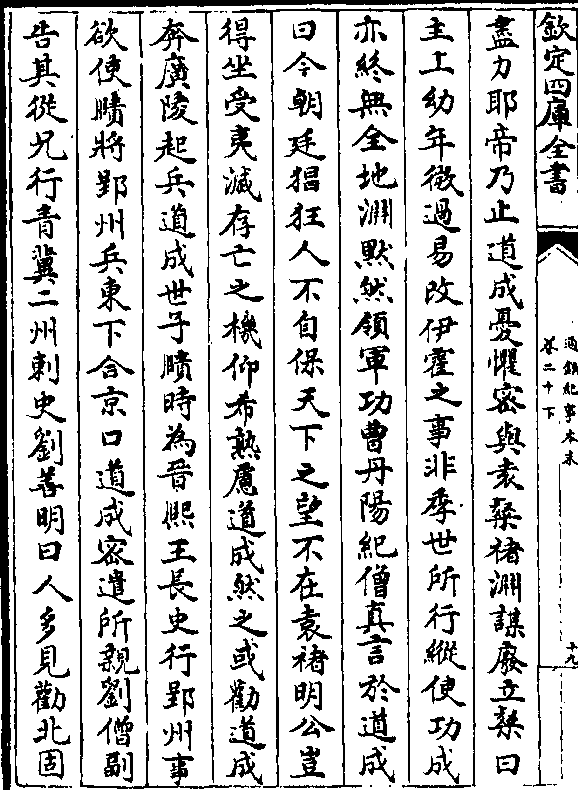 欽定四庫全書
通鑑紀事本末
卷二十下
十九
盡力耶帝乃止道成憂懼密與袁粲禇淵謀廢立粲曰
主上幼年微過易改伊霍之事非季世所行縱使功成
亦終無全地淵默然領軍功曹丹陽紀僧真言於道成
曰今朝廷猖狂人不自保天下之望不在袁禇明公豈
得坐受夷滅存亡之機仰希熟慮道成然之或勸道成
奔廣陵起兵道成世子賾時為晉熙王長史行郢州事
欲使賾將郢州兵東下會京口道成密遣所親劉僧副
告其從兄行青冀二州刺史劉善明曰人多見勸北固